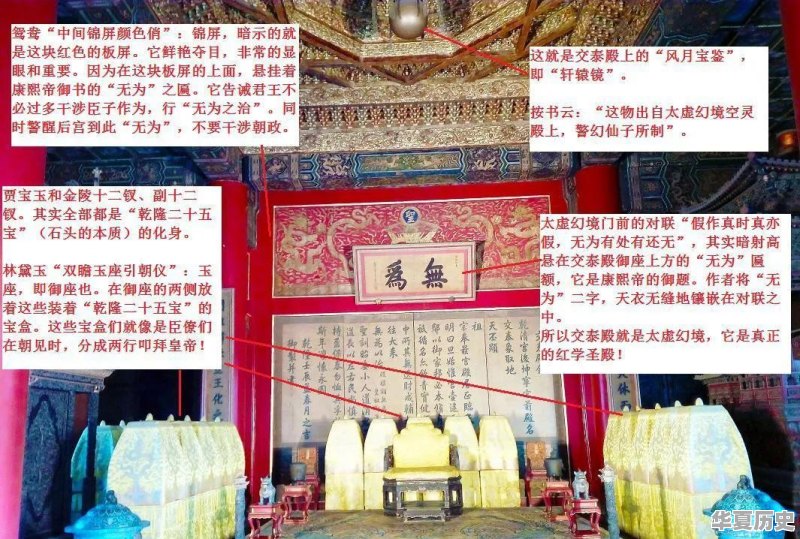 鸳鸯“中间锦屏颜色俏”：锦屏，暗示的就
是这块红色的板屏。它鲜艳夺目，非常的显
眼和重要。因为在这块板屏的上面，悬挂着
康熙帝御书的“无为”之匾。它告诫君王不
必过多干涉臣子作为，行“无为之治”。同
时警醒后宫到此“无为”，不要干涉朝政。
这就是交泰殿上的“风月宝鉴”，
即“轩辕镜”。
按书云：“这物出自太虚幻境空灵
殿上，警幻仙子所制”。
贾宝玉和金陵十二钗、副十二
钗。其实全部都是“乾隆二十五
宝”（石头的本质）的化身。
林黛玉“双瞻玉座引朝仪”：玉
座，即御座也。在御座的两侧放
着这些装着“乾隆二十五宝”的
宝盒。这些宝盒们就像是臣僚们
在朝见时，分成两行叩拜皇帝！
太虚幻境门前的对联“假作真时真亦
假，无为有处有还无”，其实暗射高
悬在交泰殿御座上方的“无为”匾
额，它是康熙帝的御题。作者将“无
为”二字，天衣无缝地镶嵌在对联之
中。
所以交泰殿就是太虚幻境，它是真正
的红学圣殿！
無爲
华夏历史